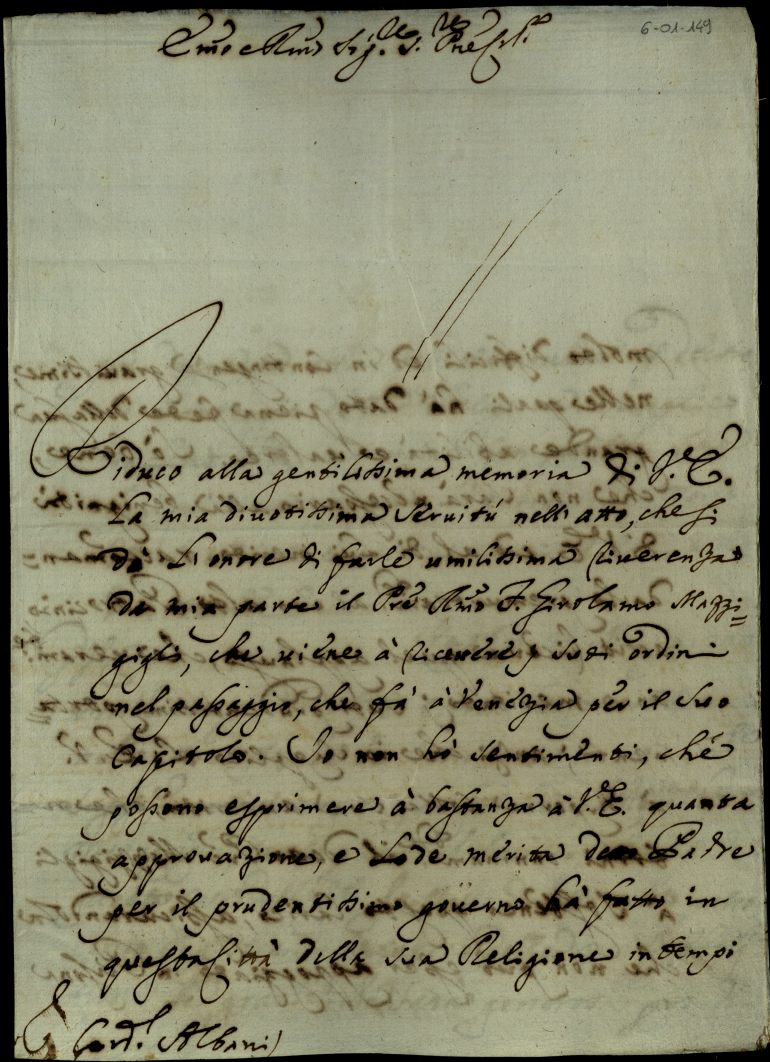 6-01-149
Emo e Rmo Sig.re S.
Riduco alla gentilissima memoria di V.E.
la mia divotissima servitù nell'atto, che si
dà l'onore di farle umilissima riverenza
da mia parte il Pre Rmo F. Girolamo Mazzi=
gigli, che viene à ricevere i suoi ordini
nel passaggio, che fà à Venezia per il suo
Capitolo. Io non hò sentimenti, che
possono esprimere à bastanza à V.E. quanta
approvazione, e lode merita Padre
per il prudentissimo governo hà fatto in
questa Città della sua Religione in tempi
Card.l Albani